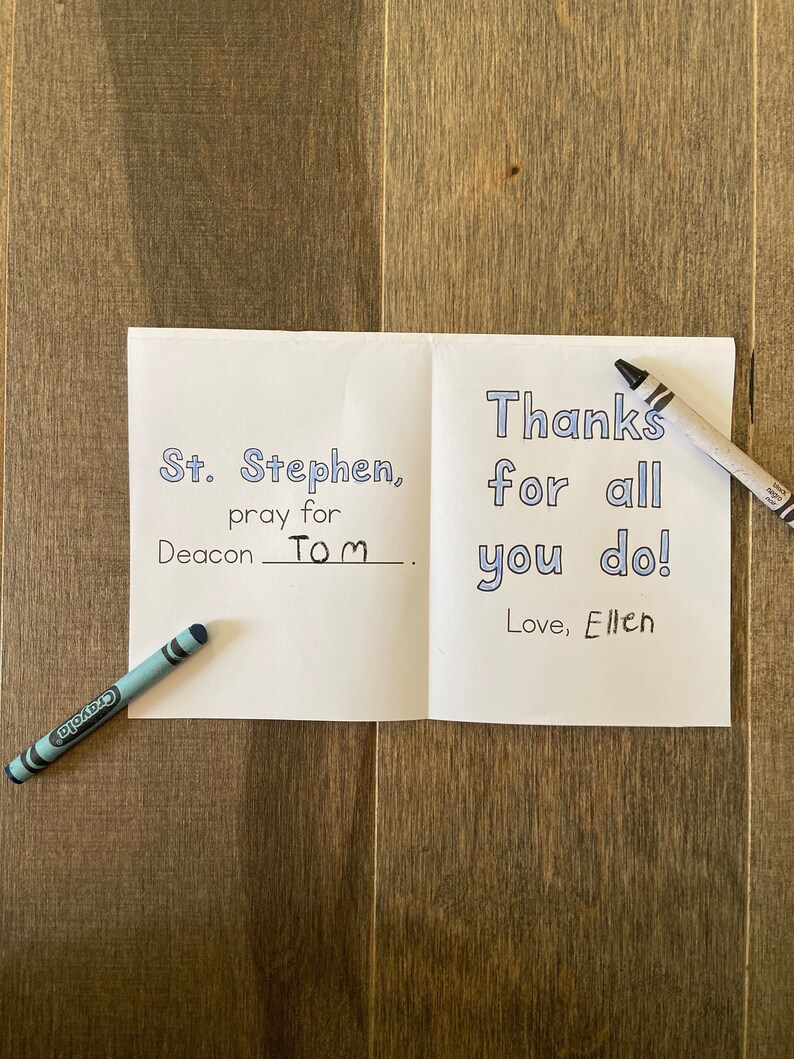 St. Stephen,
pray for
Deacon Tom.
Thanks
for all
you do!
Love, Ellen
Crayola®
black
negro
noir